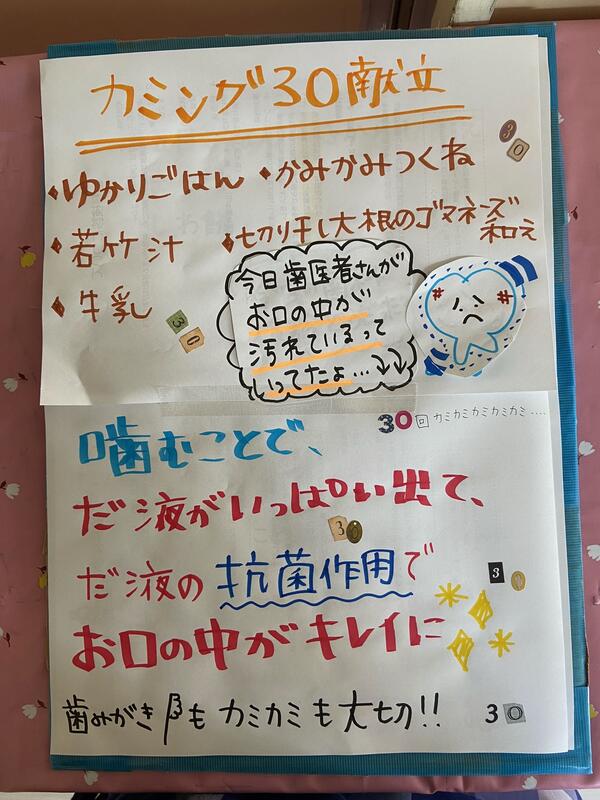 カミング30献立
3
0
・ゆかりごはん ・かみかみつくね
・若竹汁 ・切り干し大根のゴマネーズ
和え
・牛乳
3
0
今日歯医者さんが
お口の中が
汚れているって
いってたよ…↓↓
30回カミカミカミカミカミ....
噛むことで、
だ液がいっぱい出て、
30
だ液の抗菌作用で
3 0
お口の中がキレイに
歯みがきも カミカミも大切!!
30